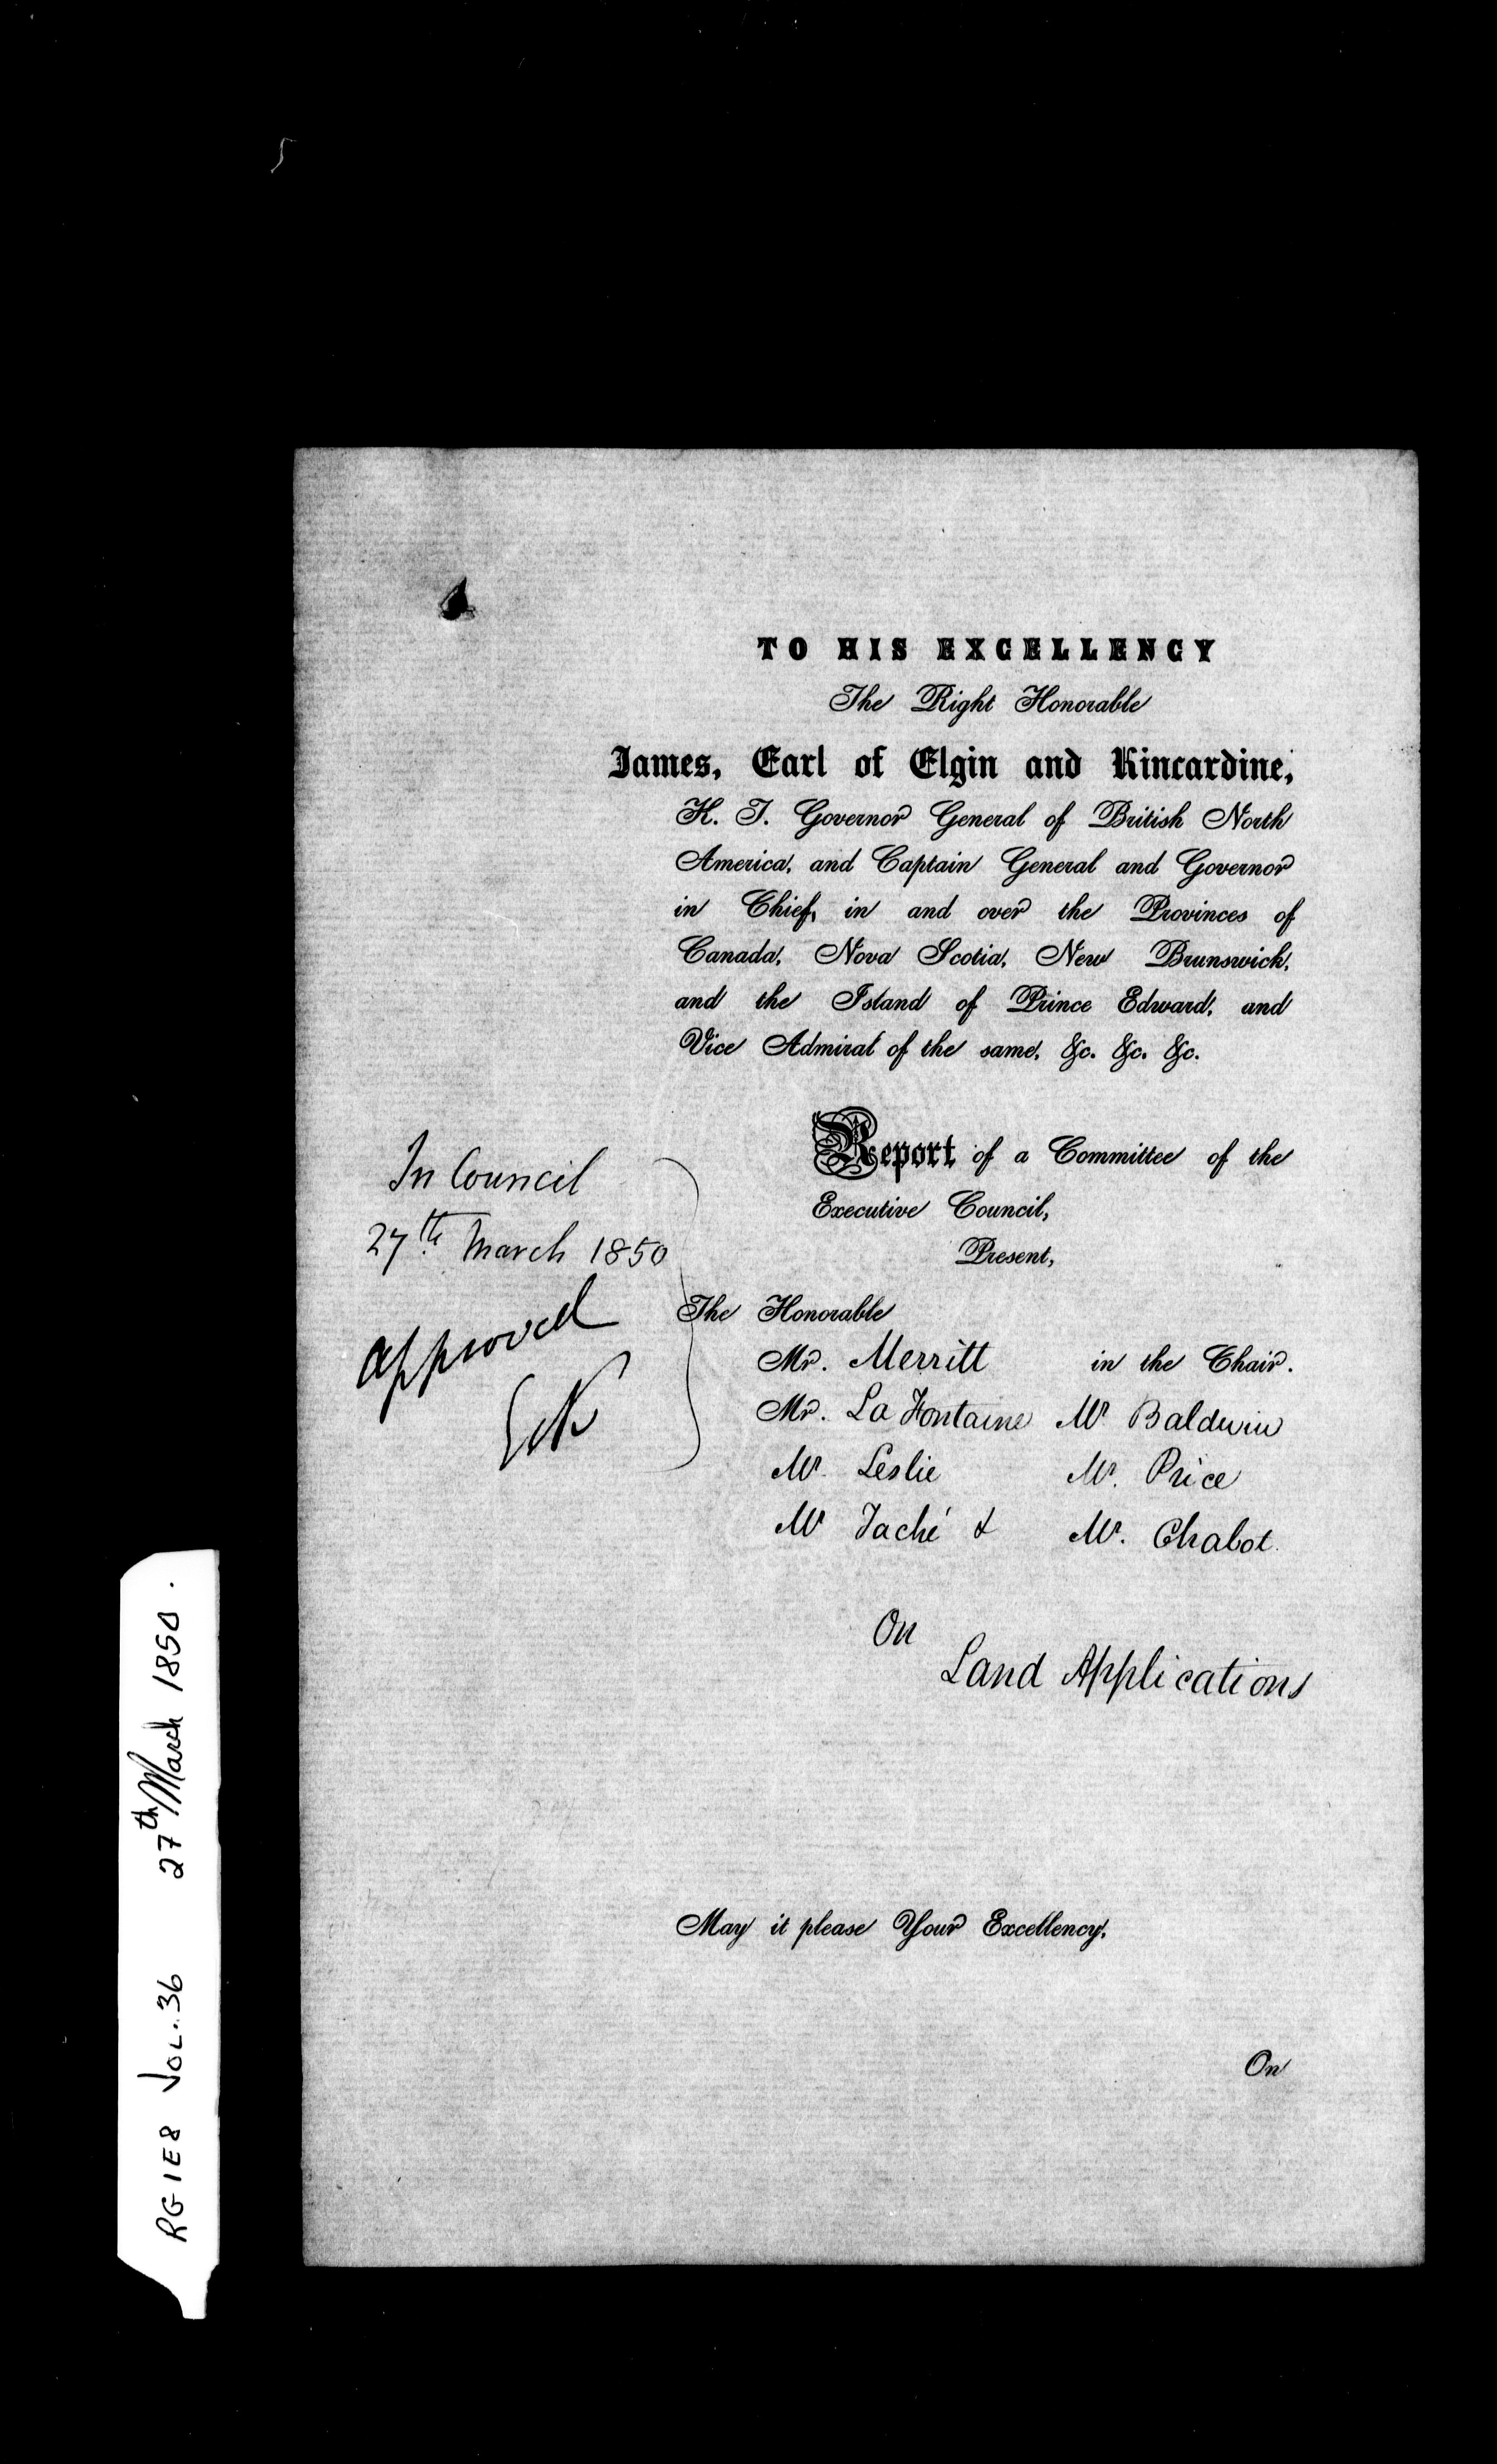 TO HIS EXCELLENCY
The Right Honorable
James, Earl of Elgin and Kincardine,
K. T. Governor General of British North
America, and Captain General and Governor
in Chief, in and over the Provinces of
Canada, Nova Scotia, New Brunswick,
and the Island of Prince Edward, and
Vice Admiral of the same, &c. &c. &c.
In Council
27th March 1850
approved
Report of a Committee of the
Executive Council,
Present,
The Honorable
Mr. Merritt in the Chair.
Mr. La Fontaine Mr Baldwin
Mr. Leslie Mr. Price
Mr Taché & Mr. Chabot.
On
Land Applications
May it please Your Excellency,
On
RG 1 E 8 VOL. 36 27th March 1850.